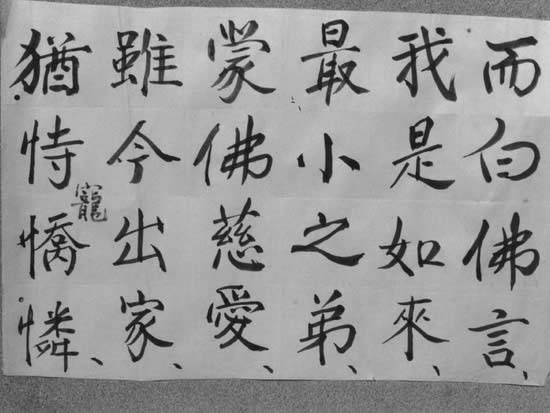 而白佛言、
我是如來、
最小之弟、
蒙佛慈愛、
雖今出家、
寵
猶恃憍憐、